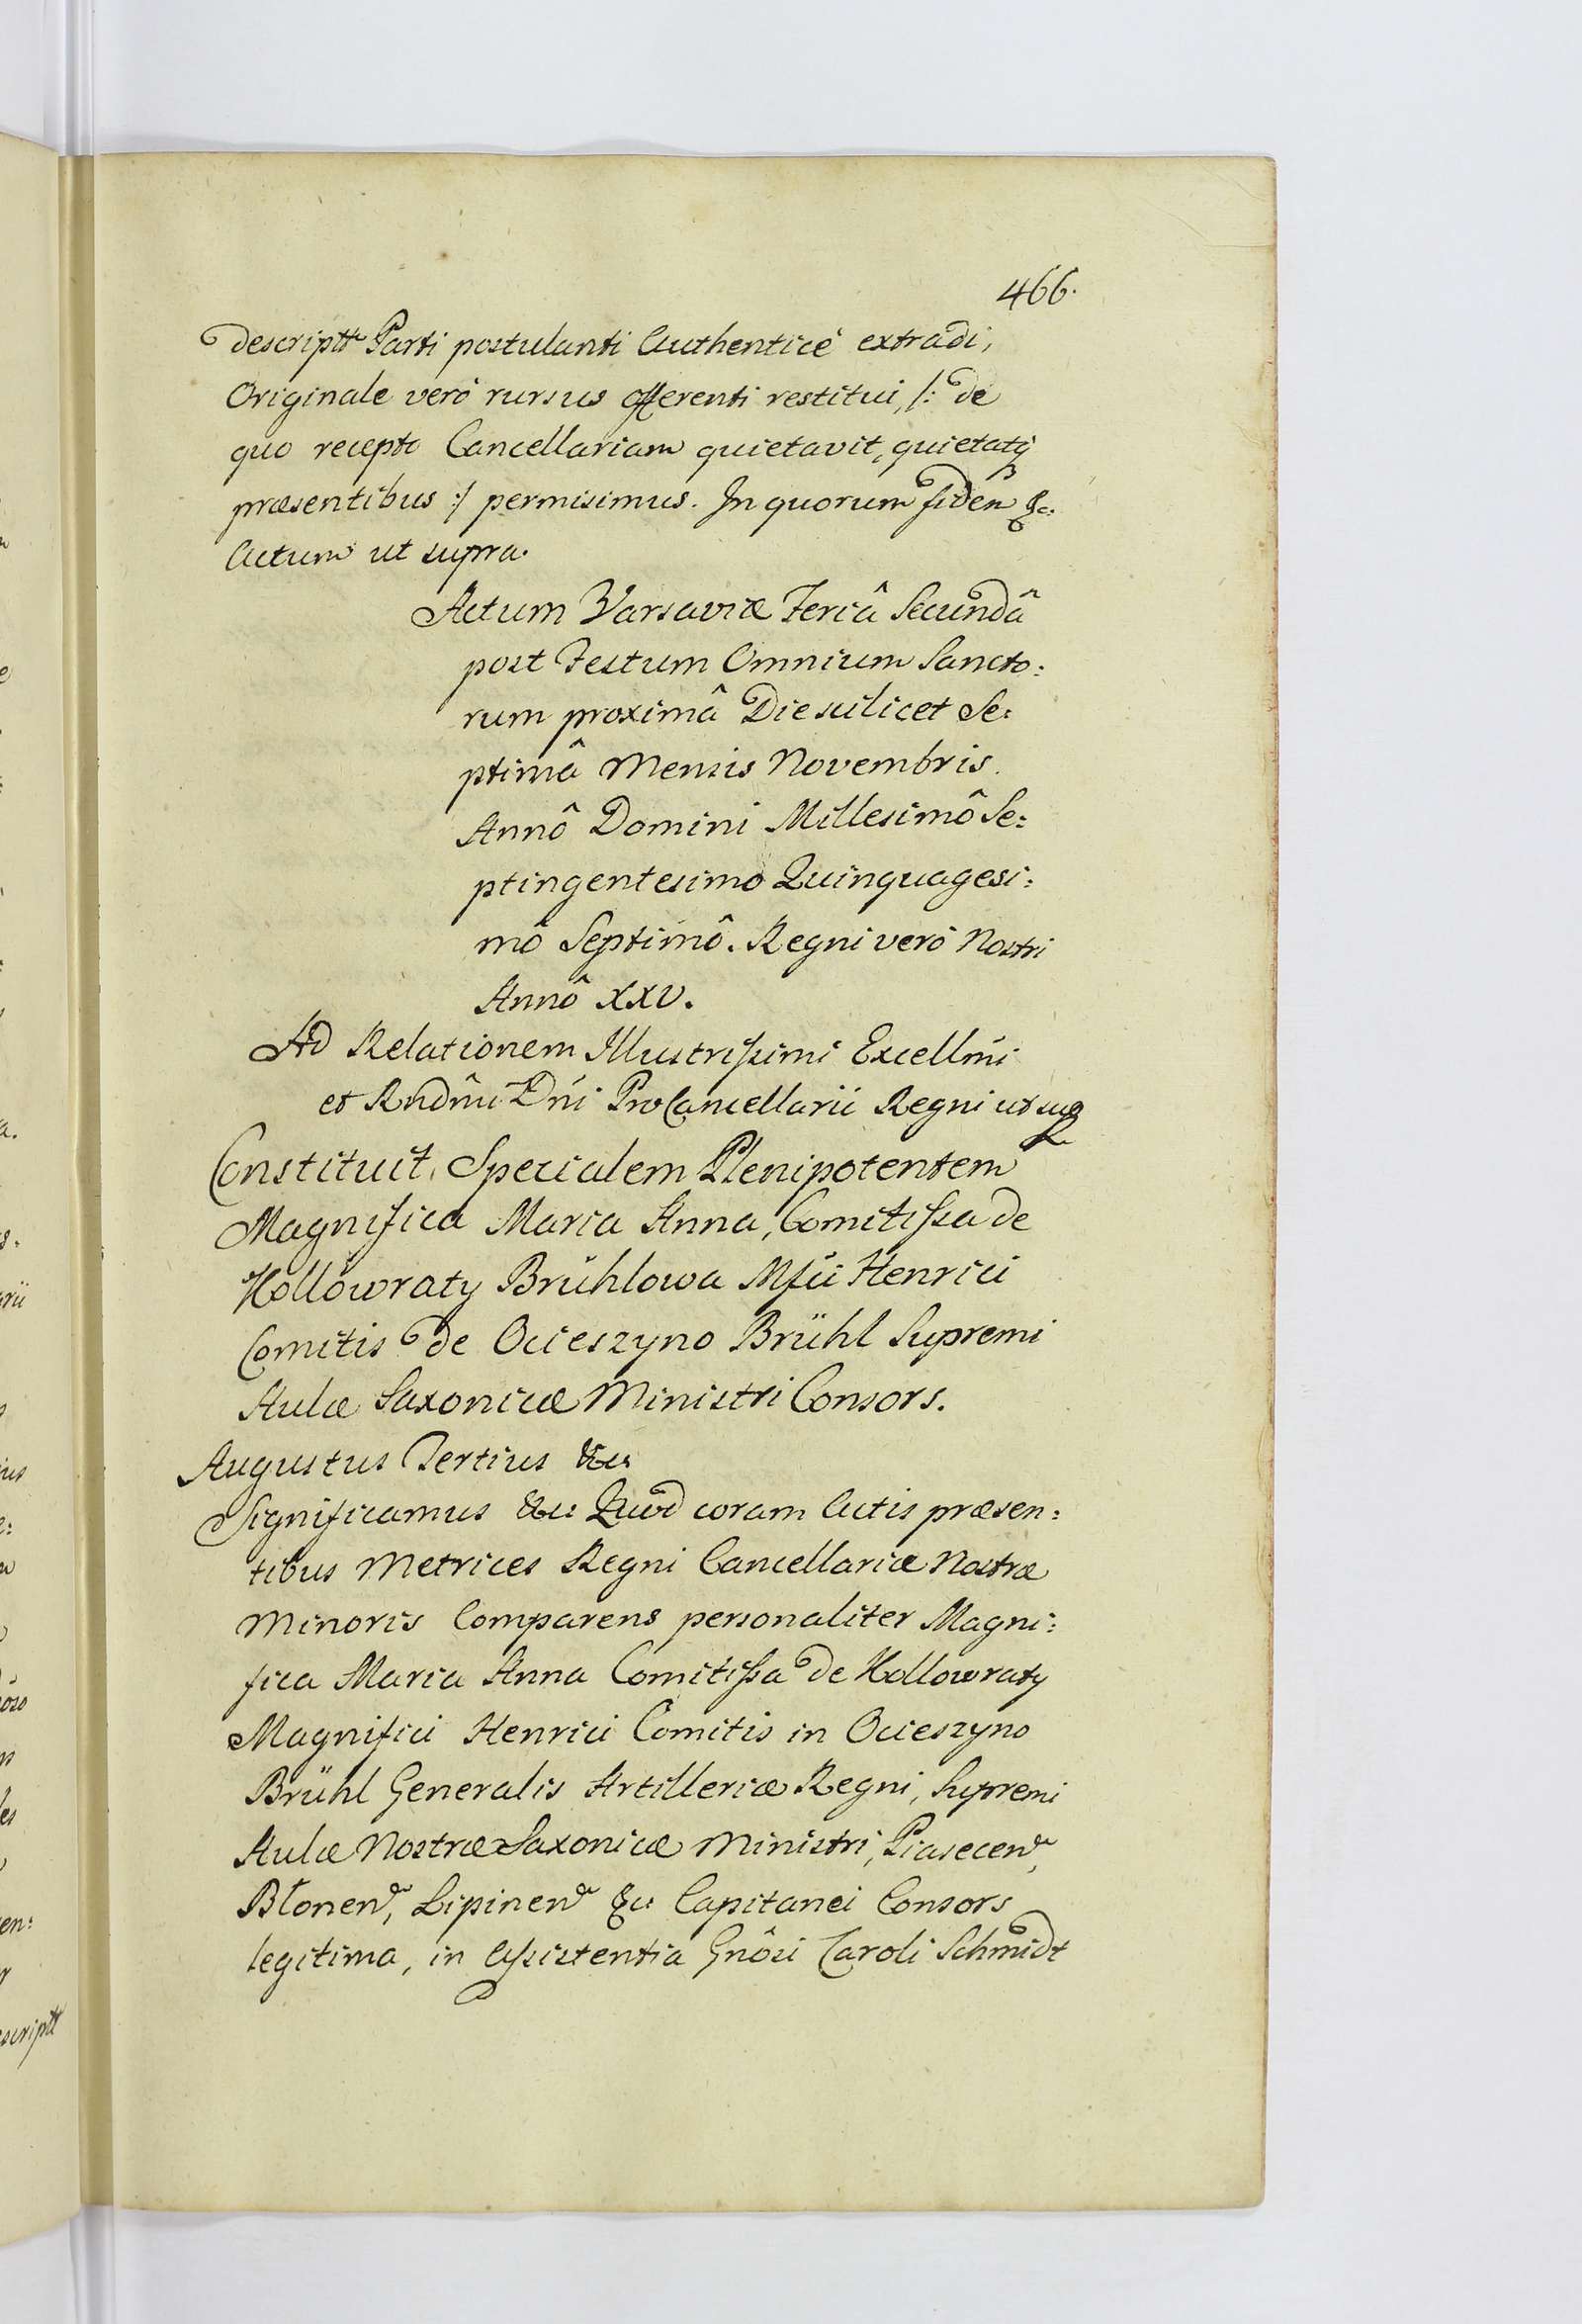 466.
descriptt Parti postulanti Authenticè extradi,
Originale verò rursus offerenti restitui, /: de
quo recepto Cancellariam quietavit, quietatq3
præsentibus :/ permisimus. In quorum fidem &c.
Actum ut supra.
Actum Varsaviæ Feriâ Secundâ
post Festum Omnium Sancto:
rum proximâ Die scilicet Se:
ptimâ Mensis Novembris.
Annô Domini Millesimô Se:
ptingentesimo Quinquagesi:
mô Septimô. Regni verò Nostri
Annô XXV.
Ad Relationem Illustrissimi Excellmi
et Rndmi Dni ProCancellarii Regni ut sup
Constituit Specialem Plenipotentem
Magnifica Maria Anna, Comitissa de
Kollowraty Brühlowa Mfci Henrici
Comitis de Ocieszyno Brühl Supremi
Aulæ Saxonicæ Ministri Consors.
Augustus Tertius &c:
Significamus &c: Quod coram Actis præsen:
tibus Metrices Regni Cancellariæ Nostræ
Minoris Comparens personaliter Magni:
fica Maria Anna Comitissa de Kollowraty
Magnifici Henrici Comitis in Ocieszyno
Brühl Generalis Artilleriæ Regni, Supremi
Aulæ Nostræ Saxonicæ Ministri, Piasecen,
Błonen, Lipinen &c: Capitanei Consors
legitima, in Assistentia Gnôsi Caroli Schmidt